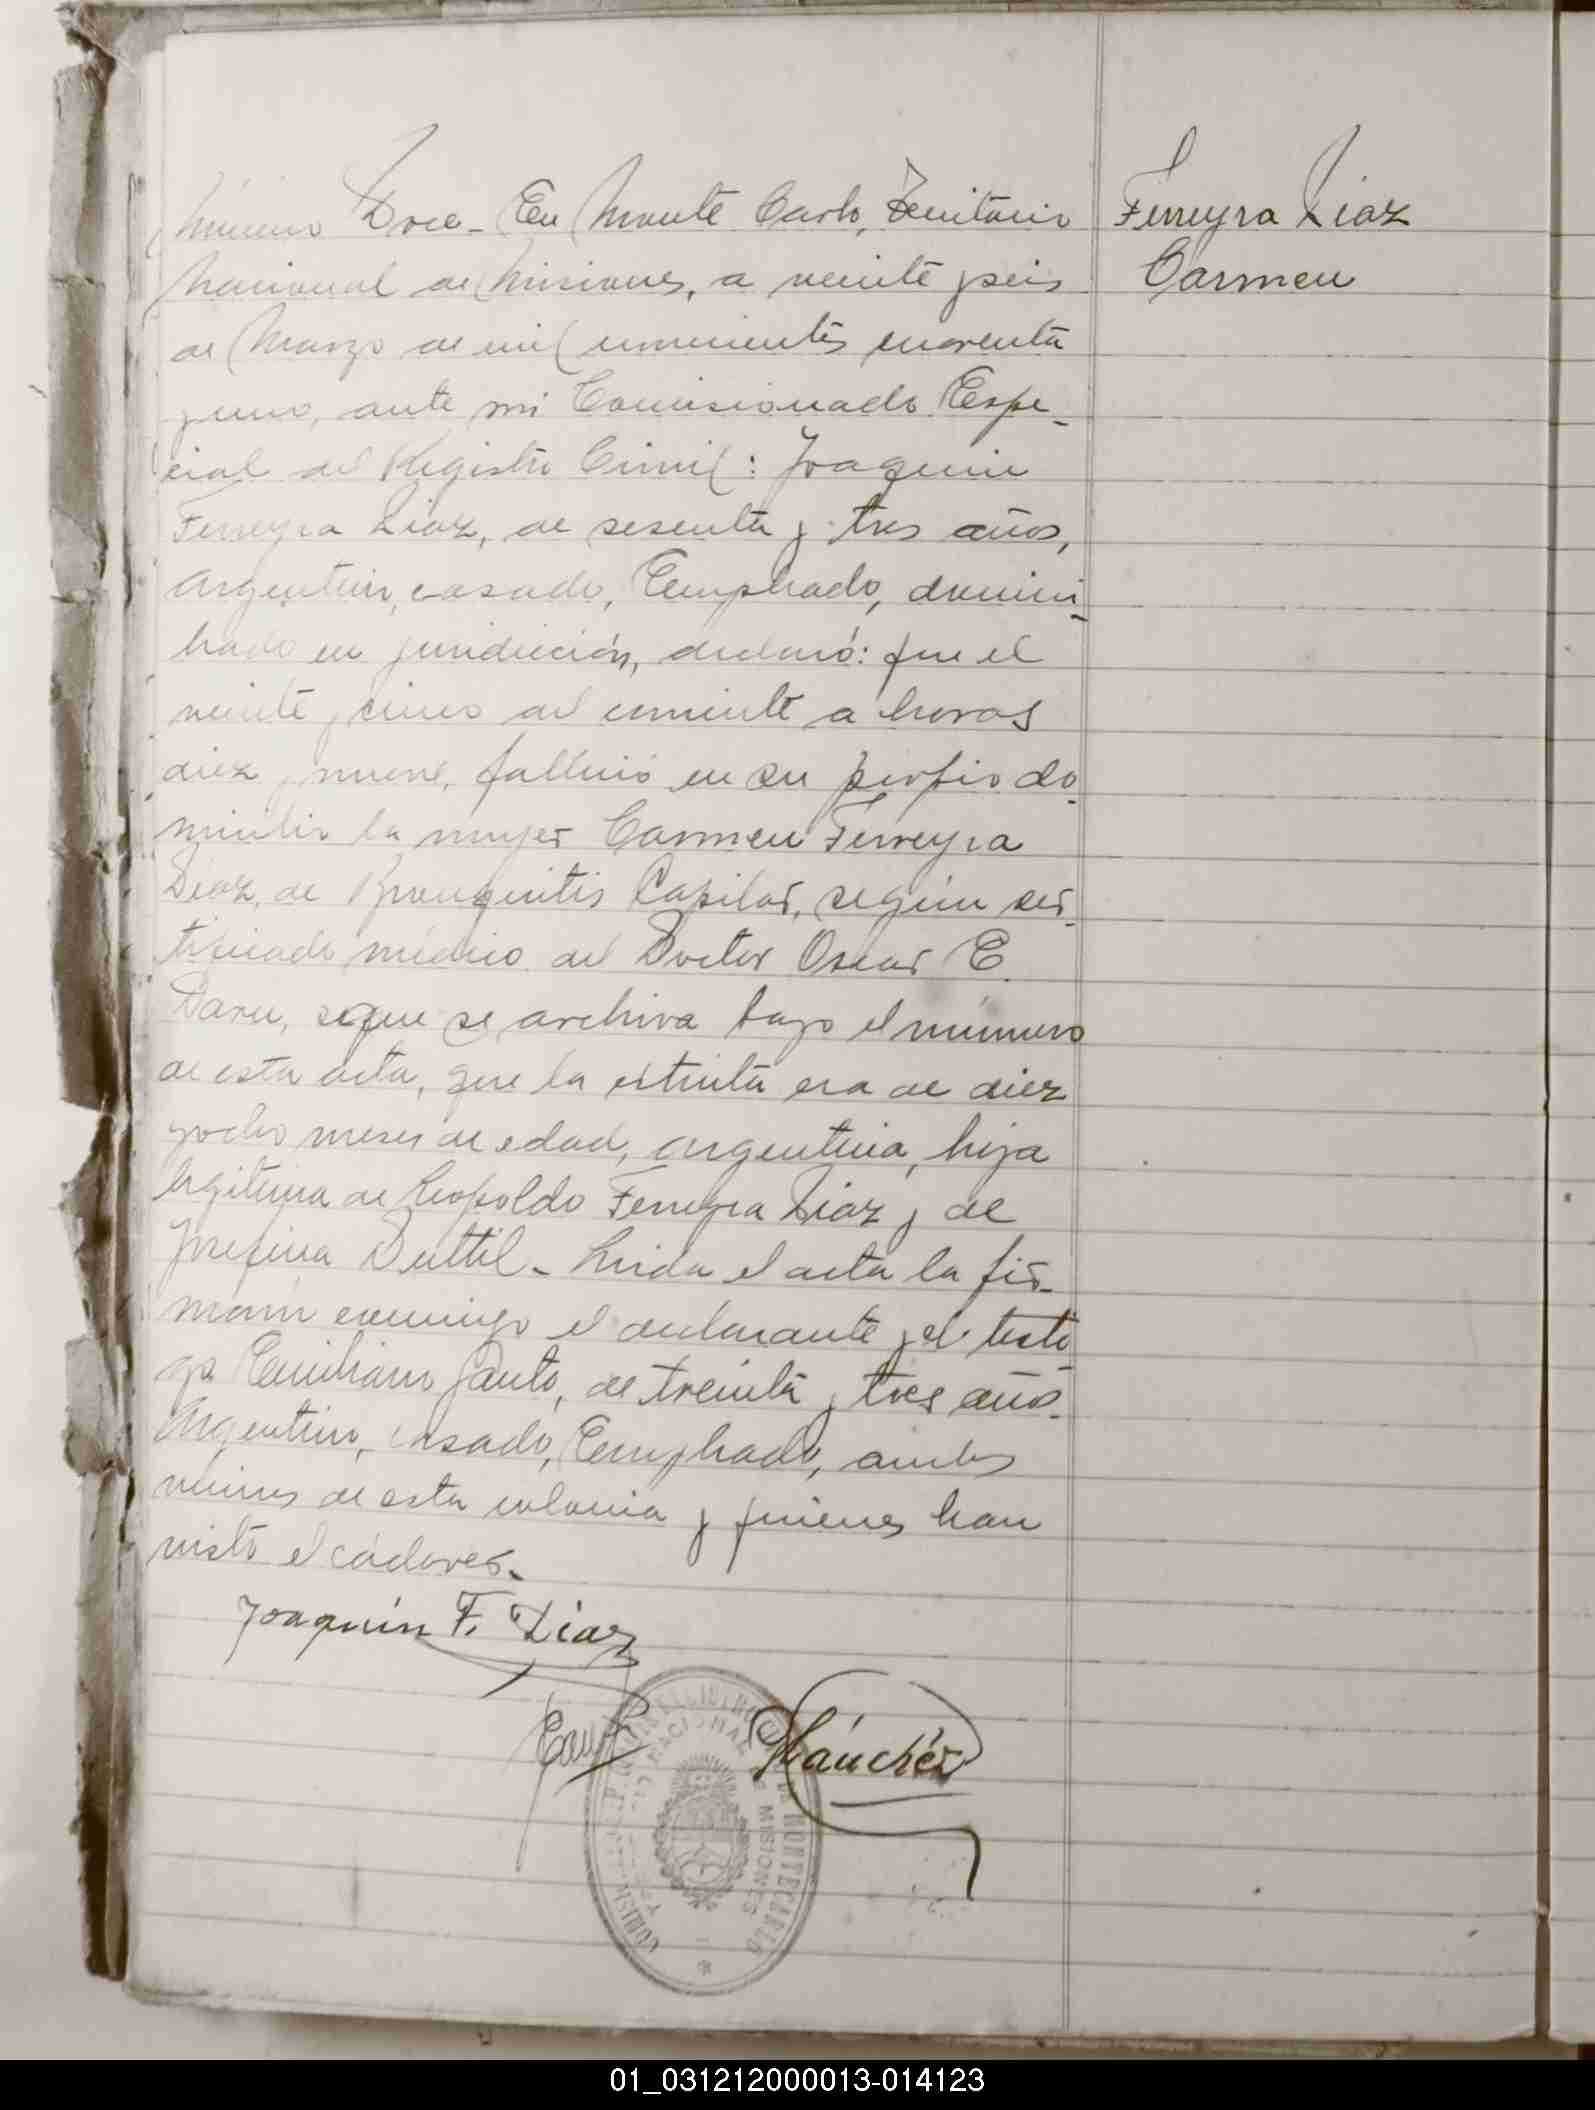 Número Doce - En Monte Carlo, Territorio
Nacional de Misiones, a veinte y seis
de Marzo de mil novecientos cuarenta
y uno, ante mi Comisionado Espe-
cial del Registro Civil: Joaquin
Ferreyra Diaz, de sesenta y tres años,
Argentino, casado, Empleado, domici-
liado en juridicción, declaró: que el
veinte y cinco del corriente a horas
diez y nueve, fallecio en su propio do-
micilio la mujer Carmen Ferreyra
Diaz, de Bronquitis Capilar, según cer-
tificado médico del Doctor Oscar E.
Daru, que se archiva bajo el número
de esta acta, que la extinta era de diez
y ocho meses de edad, argentina, hija
legitima de Leopoldo Ferreyra Diaz y de
Josefina Duttil - Leida el acta la fir-
maron conmigo el declarante y el testi-
go Emiliano Gauto, de treinta y tres años.
Argentino, casado, Empleado, ambos
vecinos de esta colonia y quienes han
visto el cádaver.
Joaquín F. Díaz
Sánchez
Ferreyra Diaz
Carmen
MONTECARLO
NACIONAL
MISIONES
01_031212000013-014123